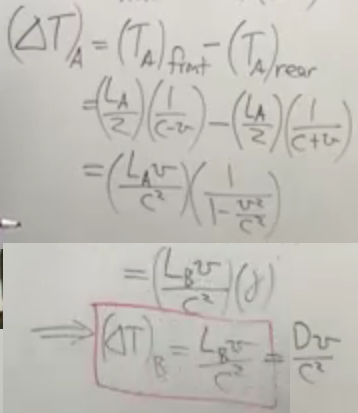 (ΔT)_A = (T_A)_front - (T_A)_rear
= (L_A/2)(1/(c-v)) - (L_A/2)(1/(c+v))
= (L_A v/c²)(1/(1 - v²/c²))
= (L_B v/c²)(γ)
⟹ (ΔT)_B = L_B v/c² = Dv/c²